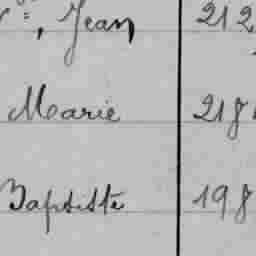 , Jean 212
Marie 218
Baptiste 198